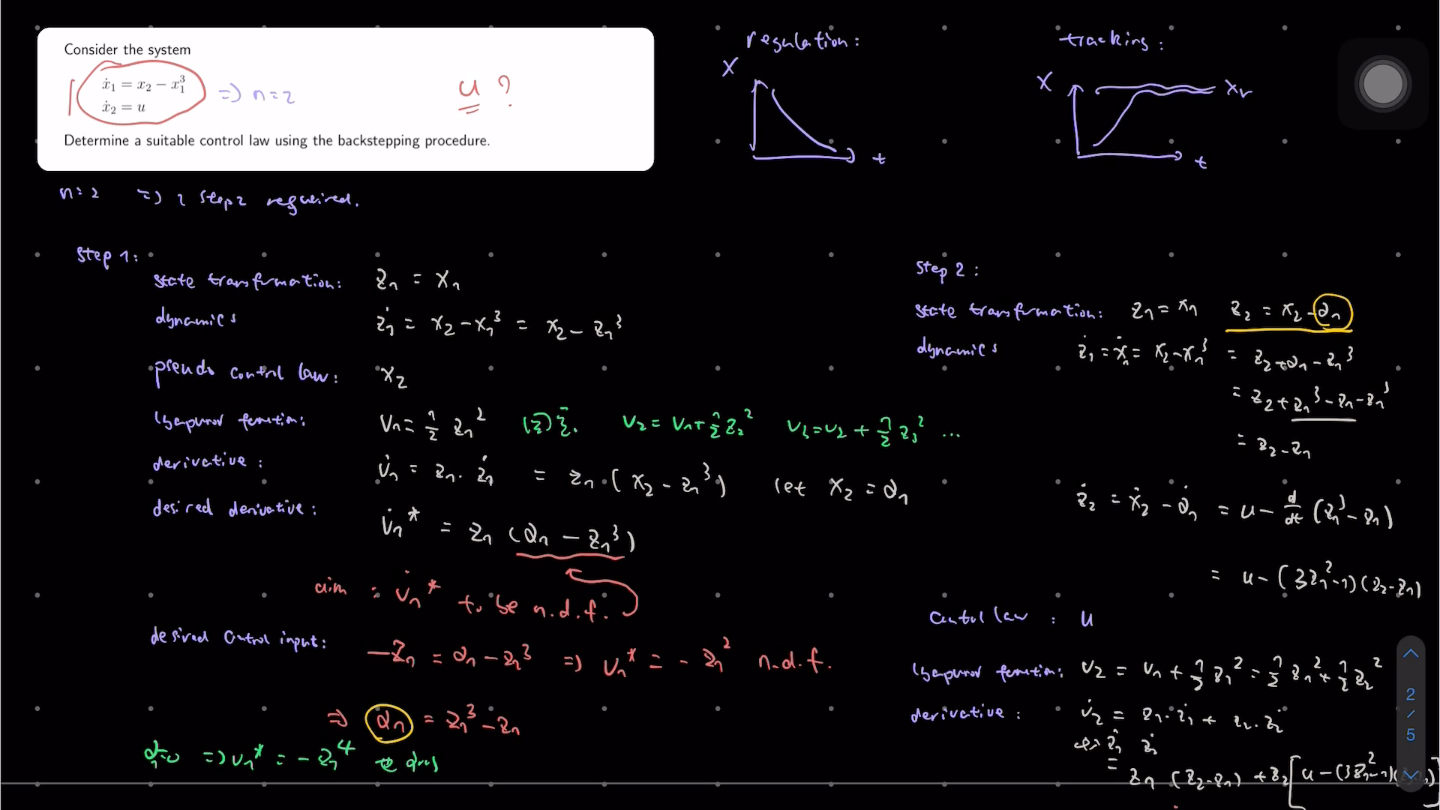 Consider the system
ẋ₁ = x₂ − x₁³
ẋ₂ = u
⇒ n=2
u ?
Determine a suitable control law using the backstepping procedure.
regulation:
x
t
tracking:
x
xᵣ
t
n=2 ⇒ 2 steps required.
Step 1:
state transformation: z₁ = x₁
dynamics ż₁ = x₂ − x₁³ = x₂ − z₁³
pseudo control law: x₂
Lyapunov function: V₁ = ½ z₁² V₂ = V₁ + ½ z₂² V₃ = V₂ + ½ z₃² ...
derivative: V̇₁ = z₁ · ż₁ = z₁ · (x₂ − z₁³) let x₂ = α₁
desired derivative: V̇₁* = z₁ (α₁ − z₁³)
aim : V̇₁* to be n.d.f.
desired control input: −z₁ = α₁ − z₁³ ⇒ V̇₁* = − z₁² n.d.f.
⇒ α₁ = z₁³ − z₁
α₁=0 ⇒ V₁* = − z₁⁴
Step 2:
state transformation: z₁ = x₁ z₂ = x₂ − α₁
dynamics ż₁ = ẋ₁ = x₂ − x₁³ = z₂ + α₁ − z₁³
= z₂ + z₁³ − z₁ − z₁³
= z₂ − z₁
ż₂ = ẋ₂ − α̇₁ = u − d/dt (z₁³ − z₁)
= u − (3z₁² − 1)(z₂ − z₁)
Control law : u
Lyapunov function: V₂ = V₁ + ½ z₂² = ½ z₁² + ½ z₂²
derivative : V̇₂ = z₁ · ż₁ + z₂ · ż₂
ż₁ ż₂
= z₁ (z₂ − z₁) + z₂ [u − (3z₁² − 1)(
2
/
5